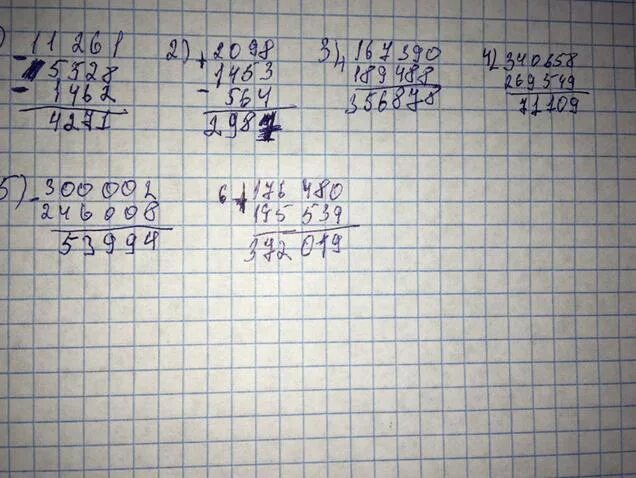 ) - 11 261
5328
- 1462
4271
2) + 2098
1453
- 564
2987
3) + 167 390
189 488
356878
4) - 340658
269549
71109
5) - 300 002
246 008
53994
6 + 176 480
195 539
372 019